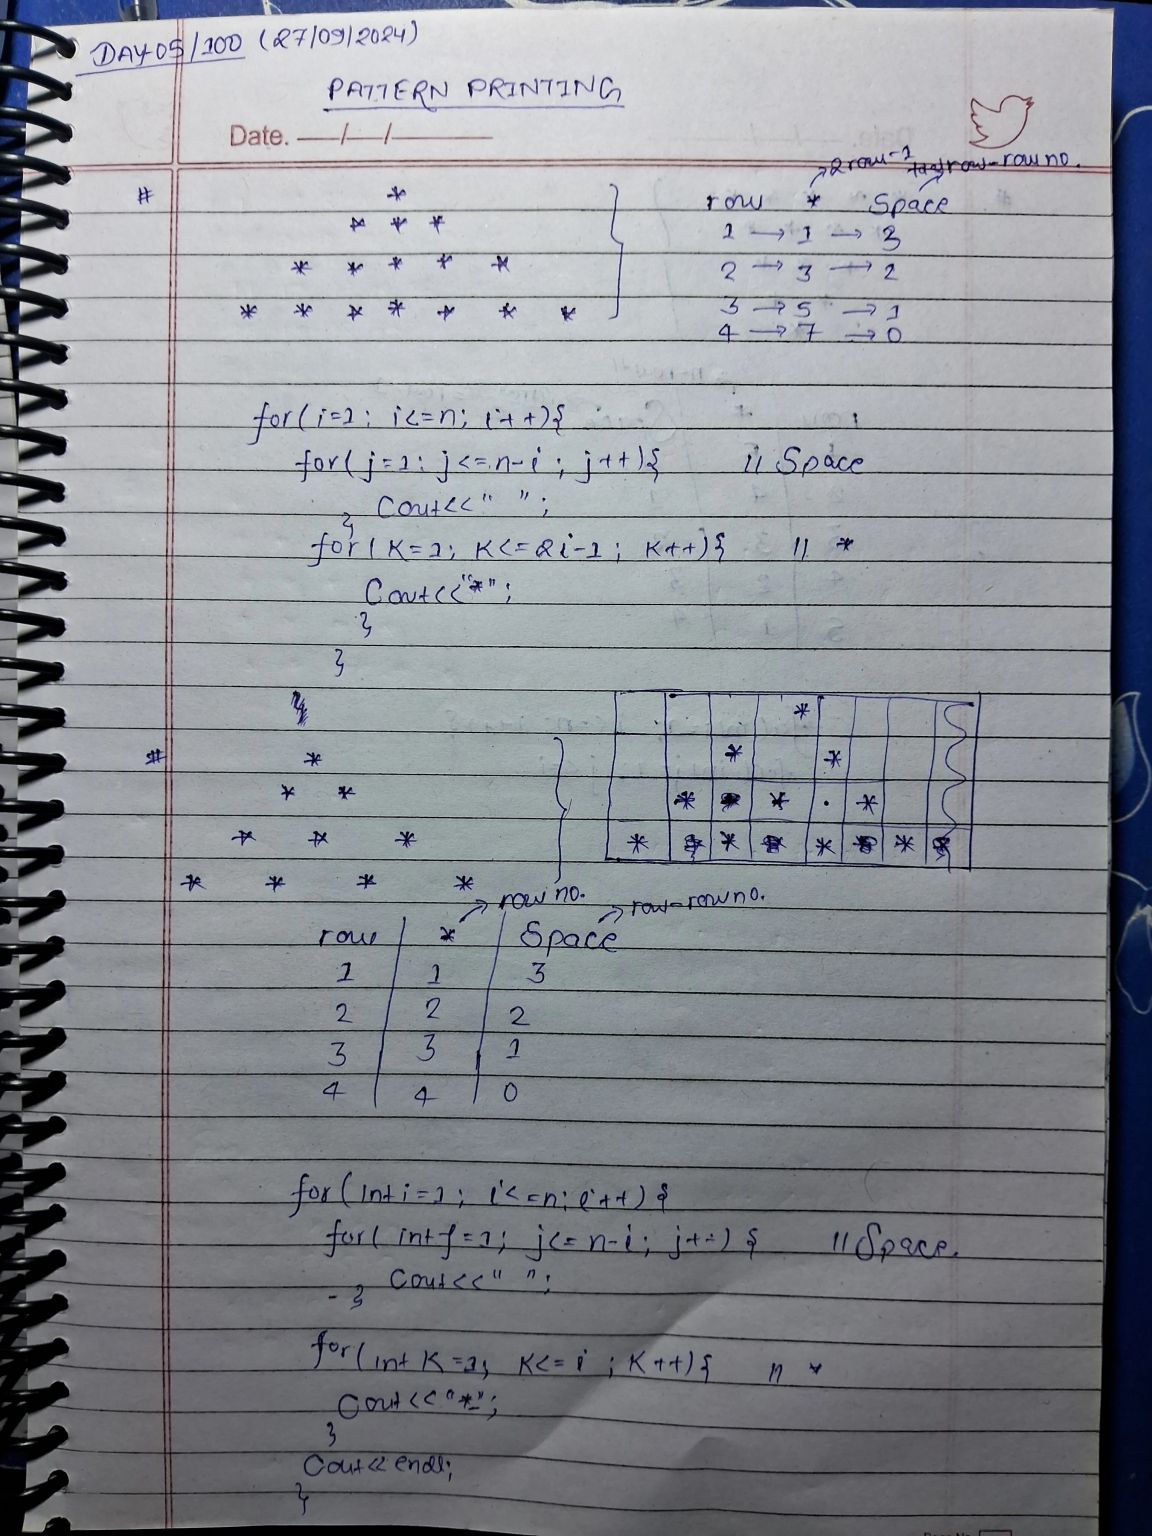 DAY-05/100 (27/09/2024)
PATTERN PRINTING
Date. —/—/———
# *
* * *
* * * * *
* * * * * * *
2row-1 row-row no.
row * Space
1 → 1 → 3
2 → 3 → 2
3 → 5 → 1
4 → 7 → 0
for(i=1; i<=n; i++){
for(j=1; j<=n-i; j++){ // Space
Cout<<" ";
}
for(K=1; K<=2i-1; K++){ // *
Cout<<"*";
}
}
# *
* *
* * *
* * * *
*
* *
* * * . *
* * * * * * * *
row no. row-row no.
row * Space
1 1 3
2 2 2
3 3 1
4 4 0
for(int i=1; i<=n; i++){
for(int j=1; j<=n-i; j++){ // Space.
Cout<<" ";
}
for(int K=1; K<=i; K++){ // *
Cout<<"*";
}
Cout<<endl;
}